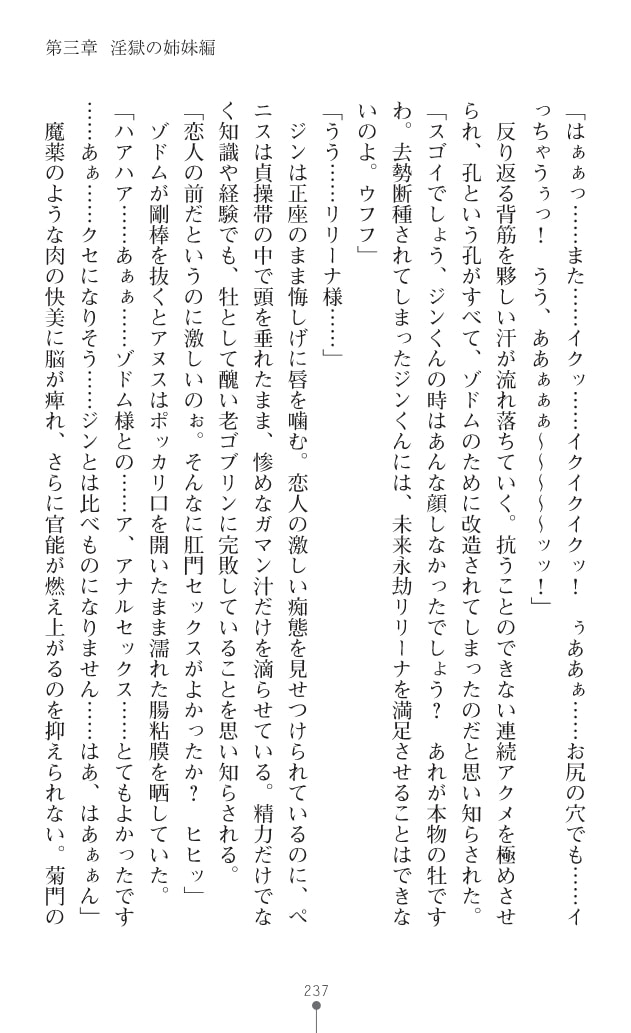 第三章 淫獄の姉妹編
「はぁぁっ……また……イクッ……イクイクイクッ！　ぅああぁ……お尻の穴でも……イ
っちゃうぅっ！　うう、ああぁぁぁ～～～～～ッッ！」
反り返る背筋を夥しい汗が流れ落ちていく。抗うことのできない連続アクメを極めさせ
られ、孔という孔がすべて、ゾドムのために改造されてしまったのだと思い知らされた。
「スゴイでしょう、ジンくんの時はあんな顔しなかったでしょう？　あれが本物の牡です
わ。去勢断種されてしまったジンくんには、未来永劫リリーナを満足させることはできな
いのよ。ウフフ」
「うう……リリーナ様……」
ジンは正座のまま悔しげに唇を噛む。恋人の激しい痴態を見せつけられているのに、ペ
ニスは貞操帯の中で頭を垂れたまま、惨めなガマン汁だけを滴らせている。精力だけでな
く知識や経験でも、牡として醜い老ゴブリンに完敗していることを思い知らされる。
「恋人の前だというのに激しいのぉ。そんなに肛門セックスがよかったか？　ヒヒッ」
ゾドムが剛棒を抜くとアヌスはポッカリ口を開いたまま濡れた腸粘膜を晒していた。
「ハアハア……あぁぁ……ゾドム様との……ア、アナルセックス……とてもよかったです
……あぁ……クセになりそう……ジンとは比べものになりません……はあ、はあぁぁん」
魔薬のような肉の快美に脳が痺れ、さらに官能が燃え上がるのを抑えられない。菊門の
237